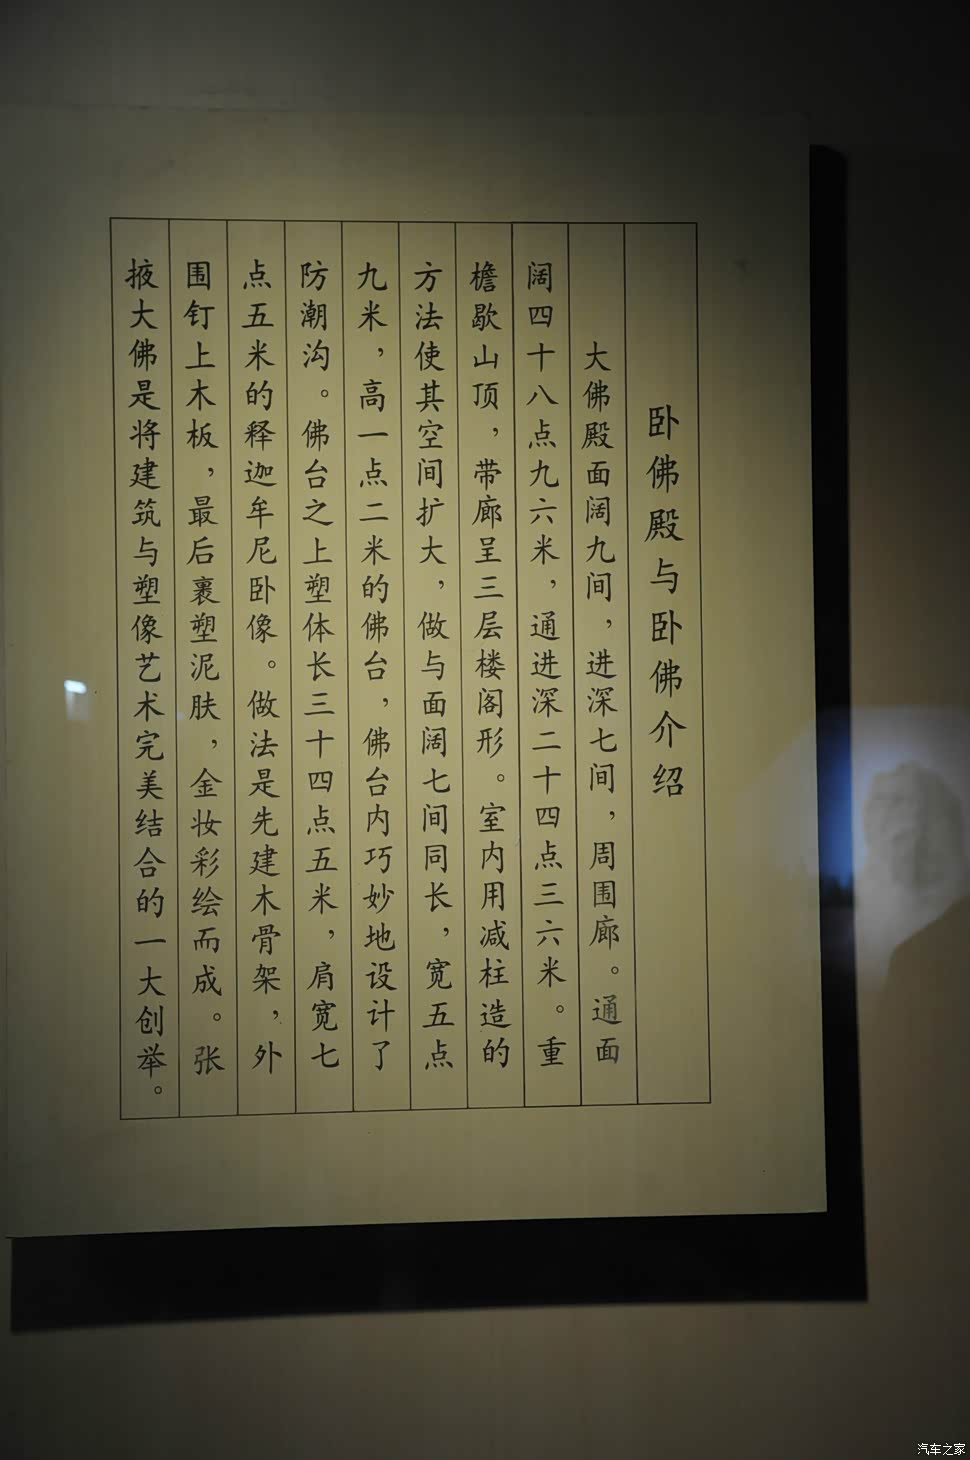 卧佛殿与卧佛介绍
大佛殿面阔九间，进深七间，周围廊。通面
阔四十八点九六米，通进深二十四点三六米。重
檐歇山顶，带廊呈三层楼阁形。室内用减柱造的
方法使其空间扩大，做与面阔七间同长，宽五点
九米，高一点二米的佛台，佛台内巧妙地设计了
防潮沟。佛台之上塑体长三十四点五米，肩宽七
点五米的释迦牟尼卧像。做法是先建木骨架，外
围钉上木板，最后裹塑泥肤，金妆彩绘而成。张
掖大佛是将建筑与塑像艺术完美结合的一大创举。
汽车之家